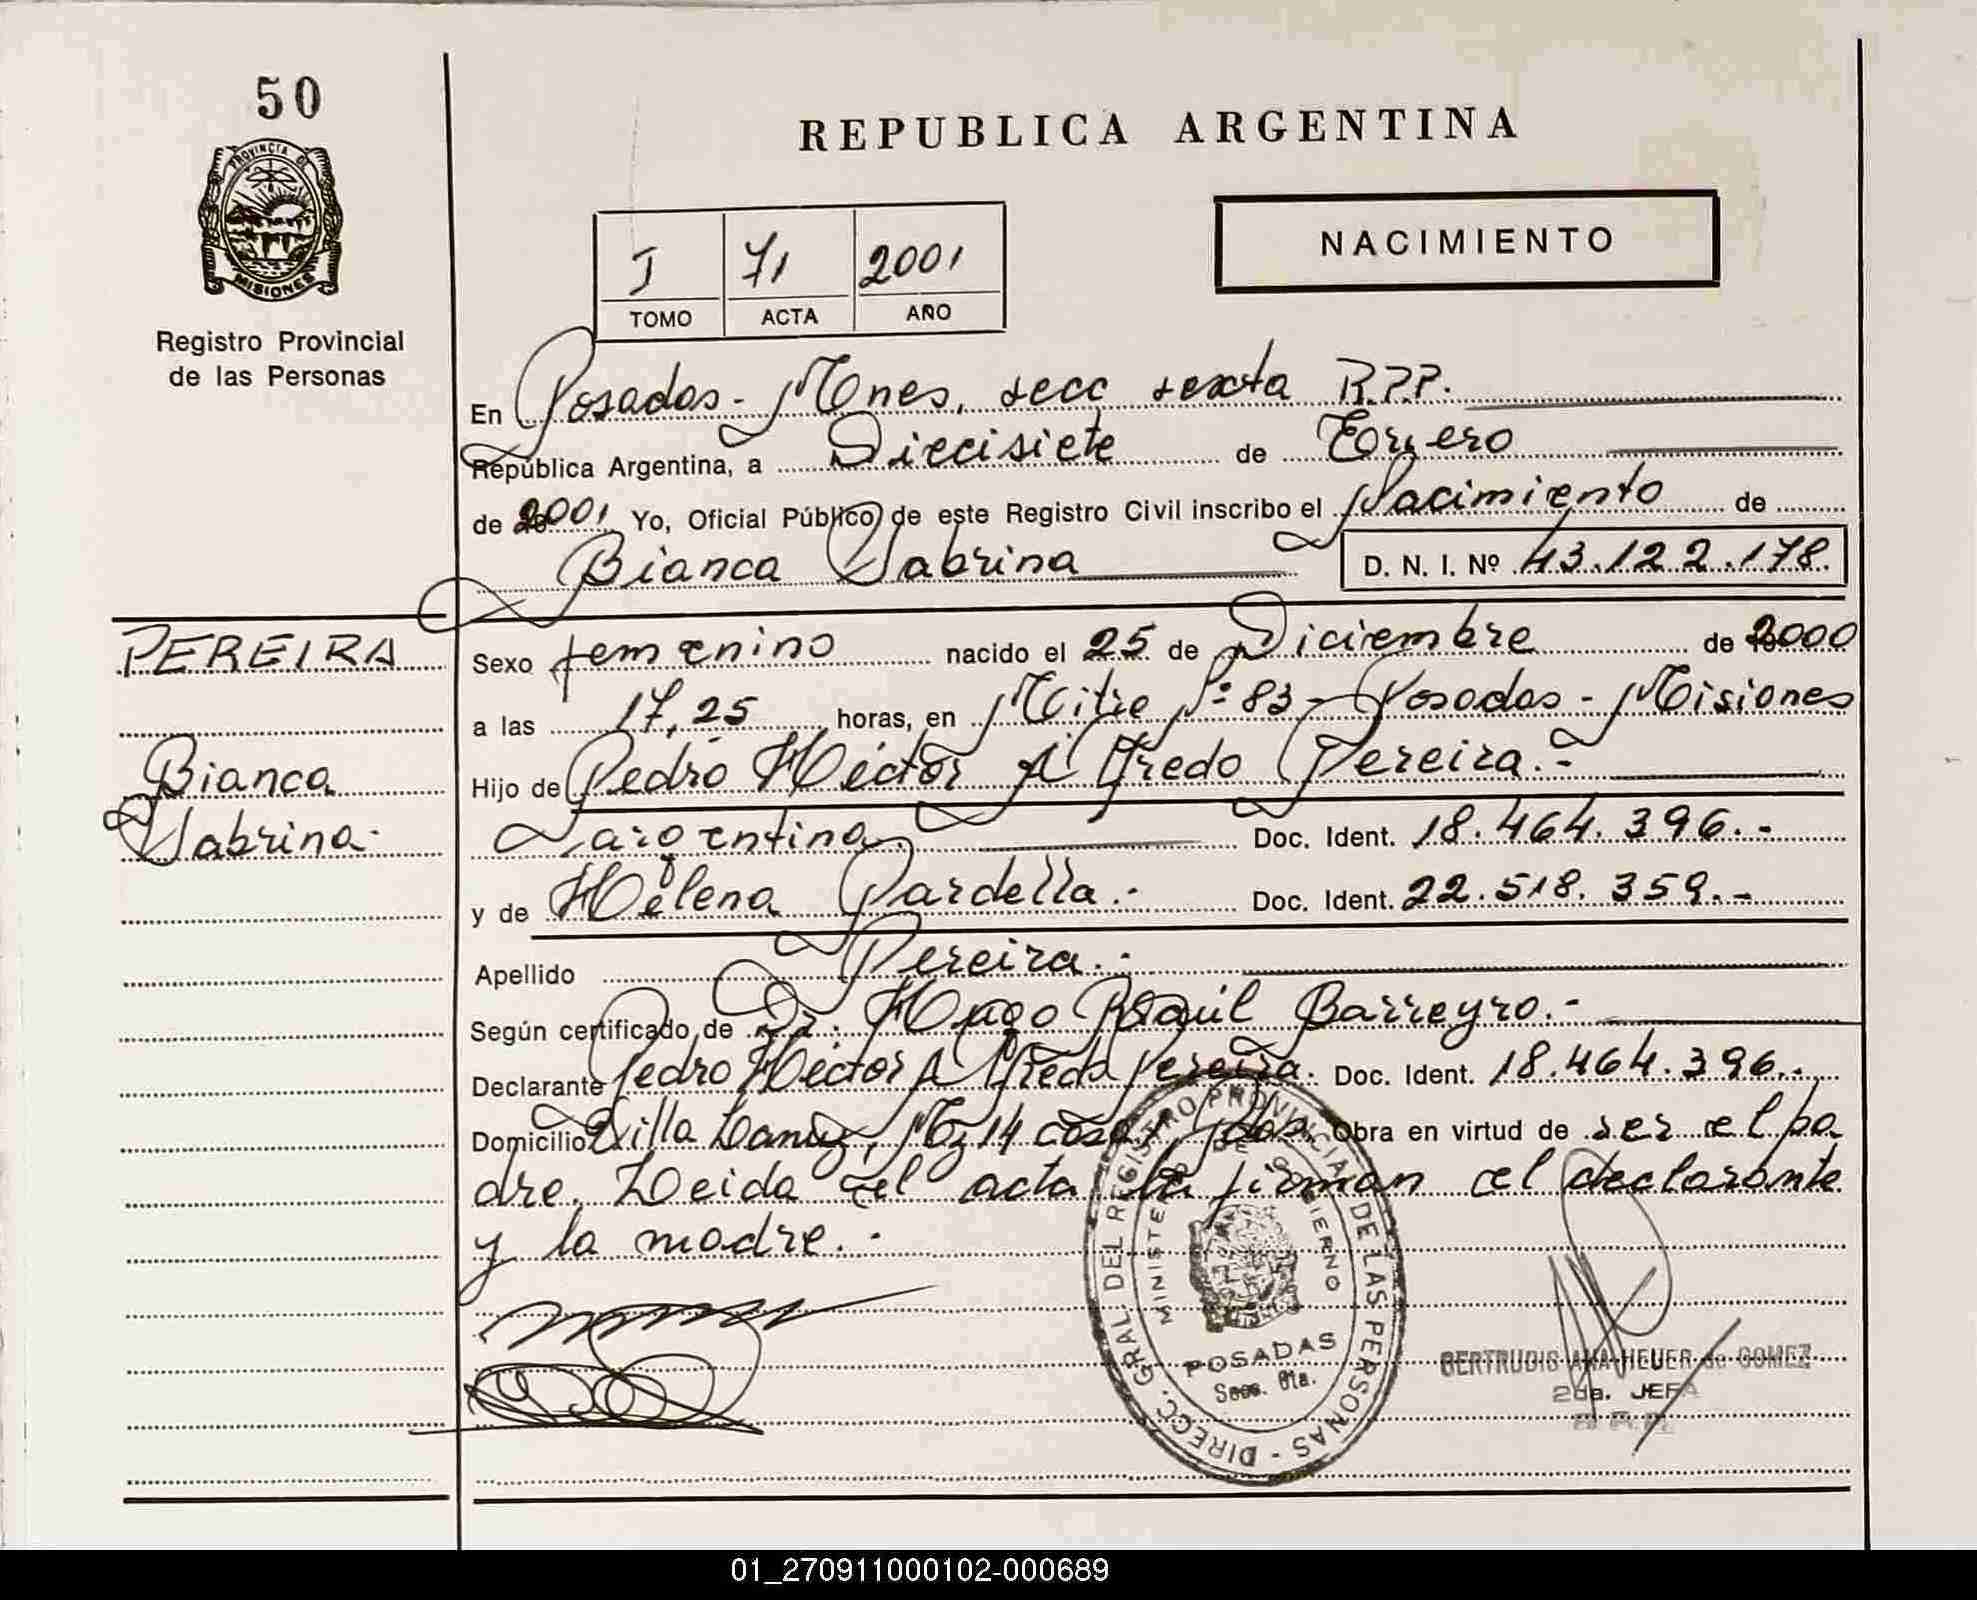 50
PROVINCIA DE
MISIONES
Registro Provincial
de las Personas
REPUBLICA ARGENTINA
NACIMIENTO
I 71 2001
TOMO ACTA AÑO
En Posadas - Mnes, secc sexta R.P.P.
República Argentina, a Diecisiete de Enero
de 2001 Yo, Oficial Público de este Registro Civil inscribo el Nacimiento de
Bianca Sabrina D. N. I. Nº 43.122.178.
PEREIRA
Bianca
Sabrina.
Sexo femenino nacido el 25 de Diciembre de 2000
a las 17,25 horas, en Mitre Nº 83 - Posadas - Misiones
Hijo de Pedro Héctor Alfredo Pereira.-
Argentina. Doc. Ident. 18.464.396.-
y de Helena Pardella.- Doc. Ident. 22.518.359.-
Apellido Pereira.-
Según certificado de Dr. Hugo Raúl Barreyro.-
Declarante Pedro Héctor Alfredo Pereira. Doc. Ident. 18.464.396.-
Domicilio Villa Mz 14 casa Obra en virtud de ser el pa
dre. Leida el acta la firman el declarante
y la madre.-
DIRECC. GRAL DEL REGISTRO PROVINCIAL DE LAS PERSONAS -
MINISTERIO DE GOBIERNO
POSADAS
Secc. 6ta.
GERTRUDIS ANA HEUER de GOMEZ
2da. JEFA
01_270911000102-000689